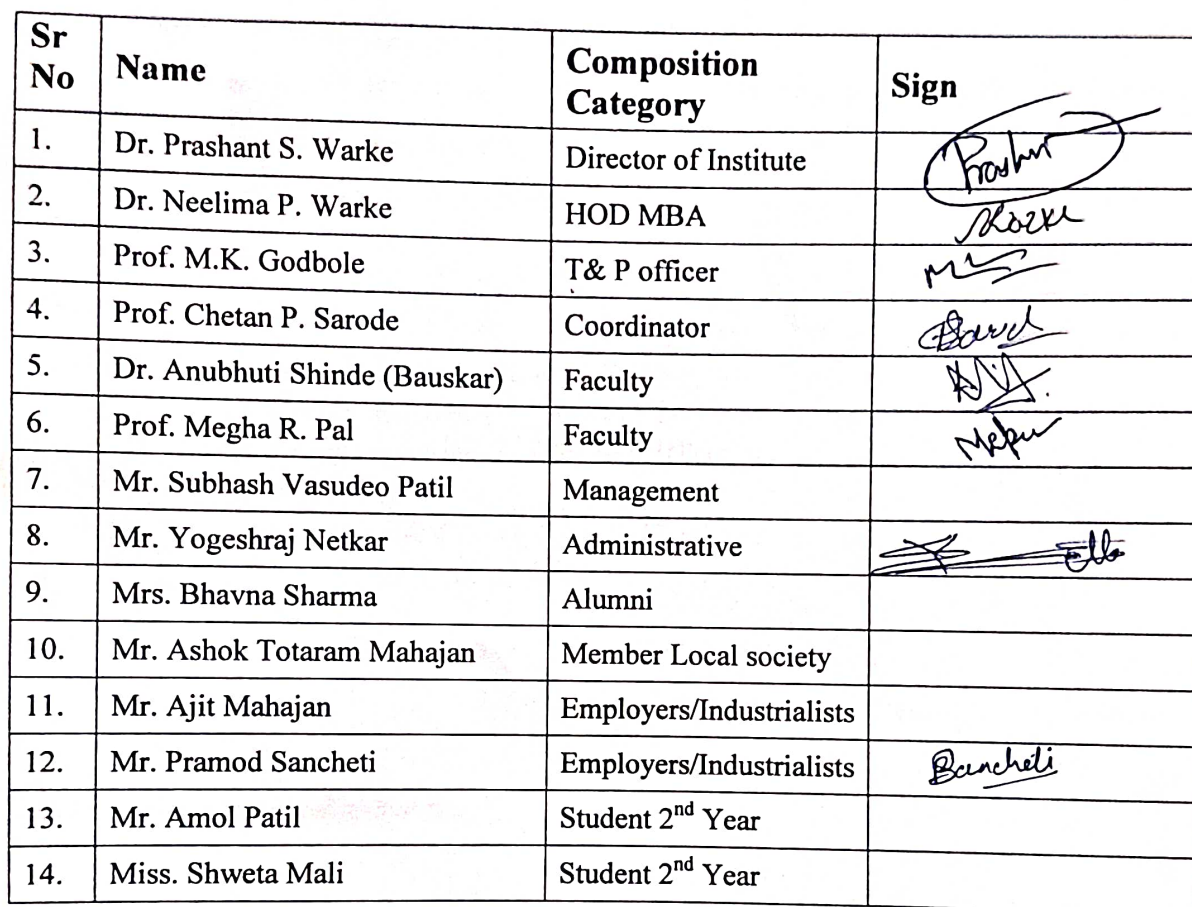 Sr No Name Composition Category Sign
1. Dr. Prashant S. Warke Director of Institute Prashant
2. Dr. Neelima P. Warke HOD MBA
3. Prof. M.K. Godbole T& P officer
4. Prof. Chetan P. Sarode Coordinator
5. Dr. Anubhuti Shinde (Bauskar) Faculty
6. Prof. Megha R. Pal Faculty
7. Mr. Subhash Vasudeo Patil Management
8. Mr. Yogeshraj Netkar Administrative
9. Mrs. Bhavna Sharma Alumni
10. Mr. Ashok Totaram Mahajan Member Local society
11. Mr. Ajit Mahajan Employers/Industrialists
12. Mr. Pramod Sancheti Employers/Industrialists Sancheti
13. Mr. Amol Patil Student 2nd Year
14. Miss. Shweta Mali Student 2nd Year